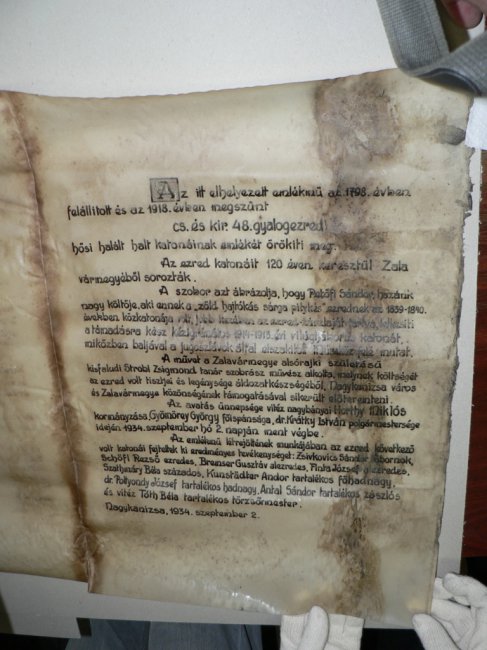 Az itt elhelyezett emlékmű az 1798. évben
felállított és az 1918. évben megszűnt
cs. és kir. 48. gyalogezred
hősi halált halt katonáinak emlékét örökíti meg.
Az ezred katonáit 120 éven keresztül Zala
vármegyéből sorozták.
A szobor azt ábrázolja, hogy Petőfi Sándor, hazánk
nagy költője, aki ennek a „zöld hajtókás sárga pitykés" ezrednek az 1839-1840.
években közkatonája volt, jobb az ezred tartva, lelkesíti
a támadásra kész 1914-1918. évi világháborús katonát,
miközben baljával a jugoszlávok által elszakított mutat.
A művet a Zalavármegye alsórajki születésű
kisfaludi Strobl Zsigmond tanár szobrász művész alkotta, melynek költségét
az ezred volt tisztjei és legénysége áldozatkészségéből, Nagykanizsa város
és Zalavármegye közönségének támogatásával sikerült előteremteni.
Az avatás ünnepsége vitéz nagybányai Horthy Miklós
kormányzása, Gyömörey György főispánsága, dr. Krátky István polgármestersége
idején 1934. szeptember hó 2. napján ment végbe.
Az emlékmű létrejöttének munkájában az ezred következő
volt katonái fejtettek ki eredményes tevékenységet: Zsivkovics Sándor tábornok,
Schöfl Rezső ezredes, Brenser Gusztáv alezredes, Pinta József g. ezredes,
Szathmáry Béla százados, Kunstädter Andor tartalékos főhadnagy,
dr. Pottyondy József tartalékos hadnagy, Antal Sándor tartalékos zászlós
és vitéz Tóth Béla tartalékos törzsőrmester.
Nagykanizsa, 1934. szeptember 2.